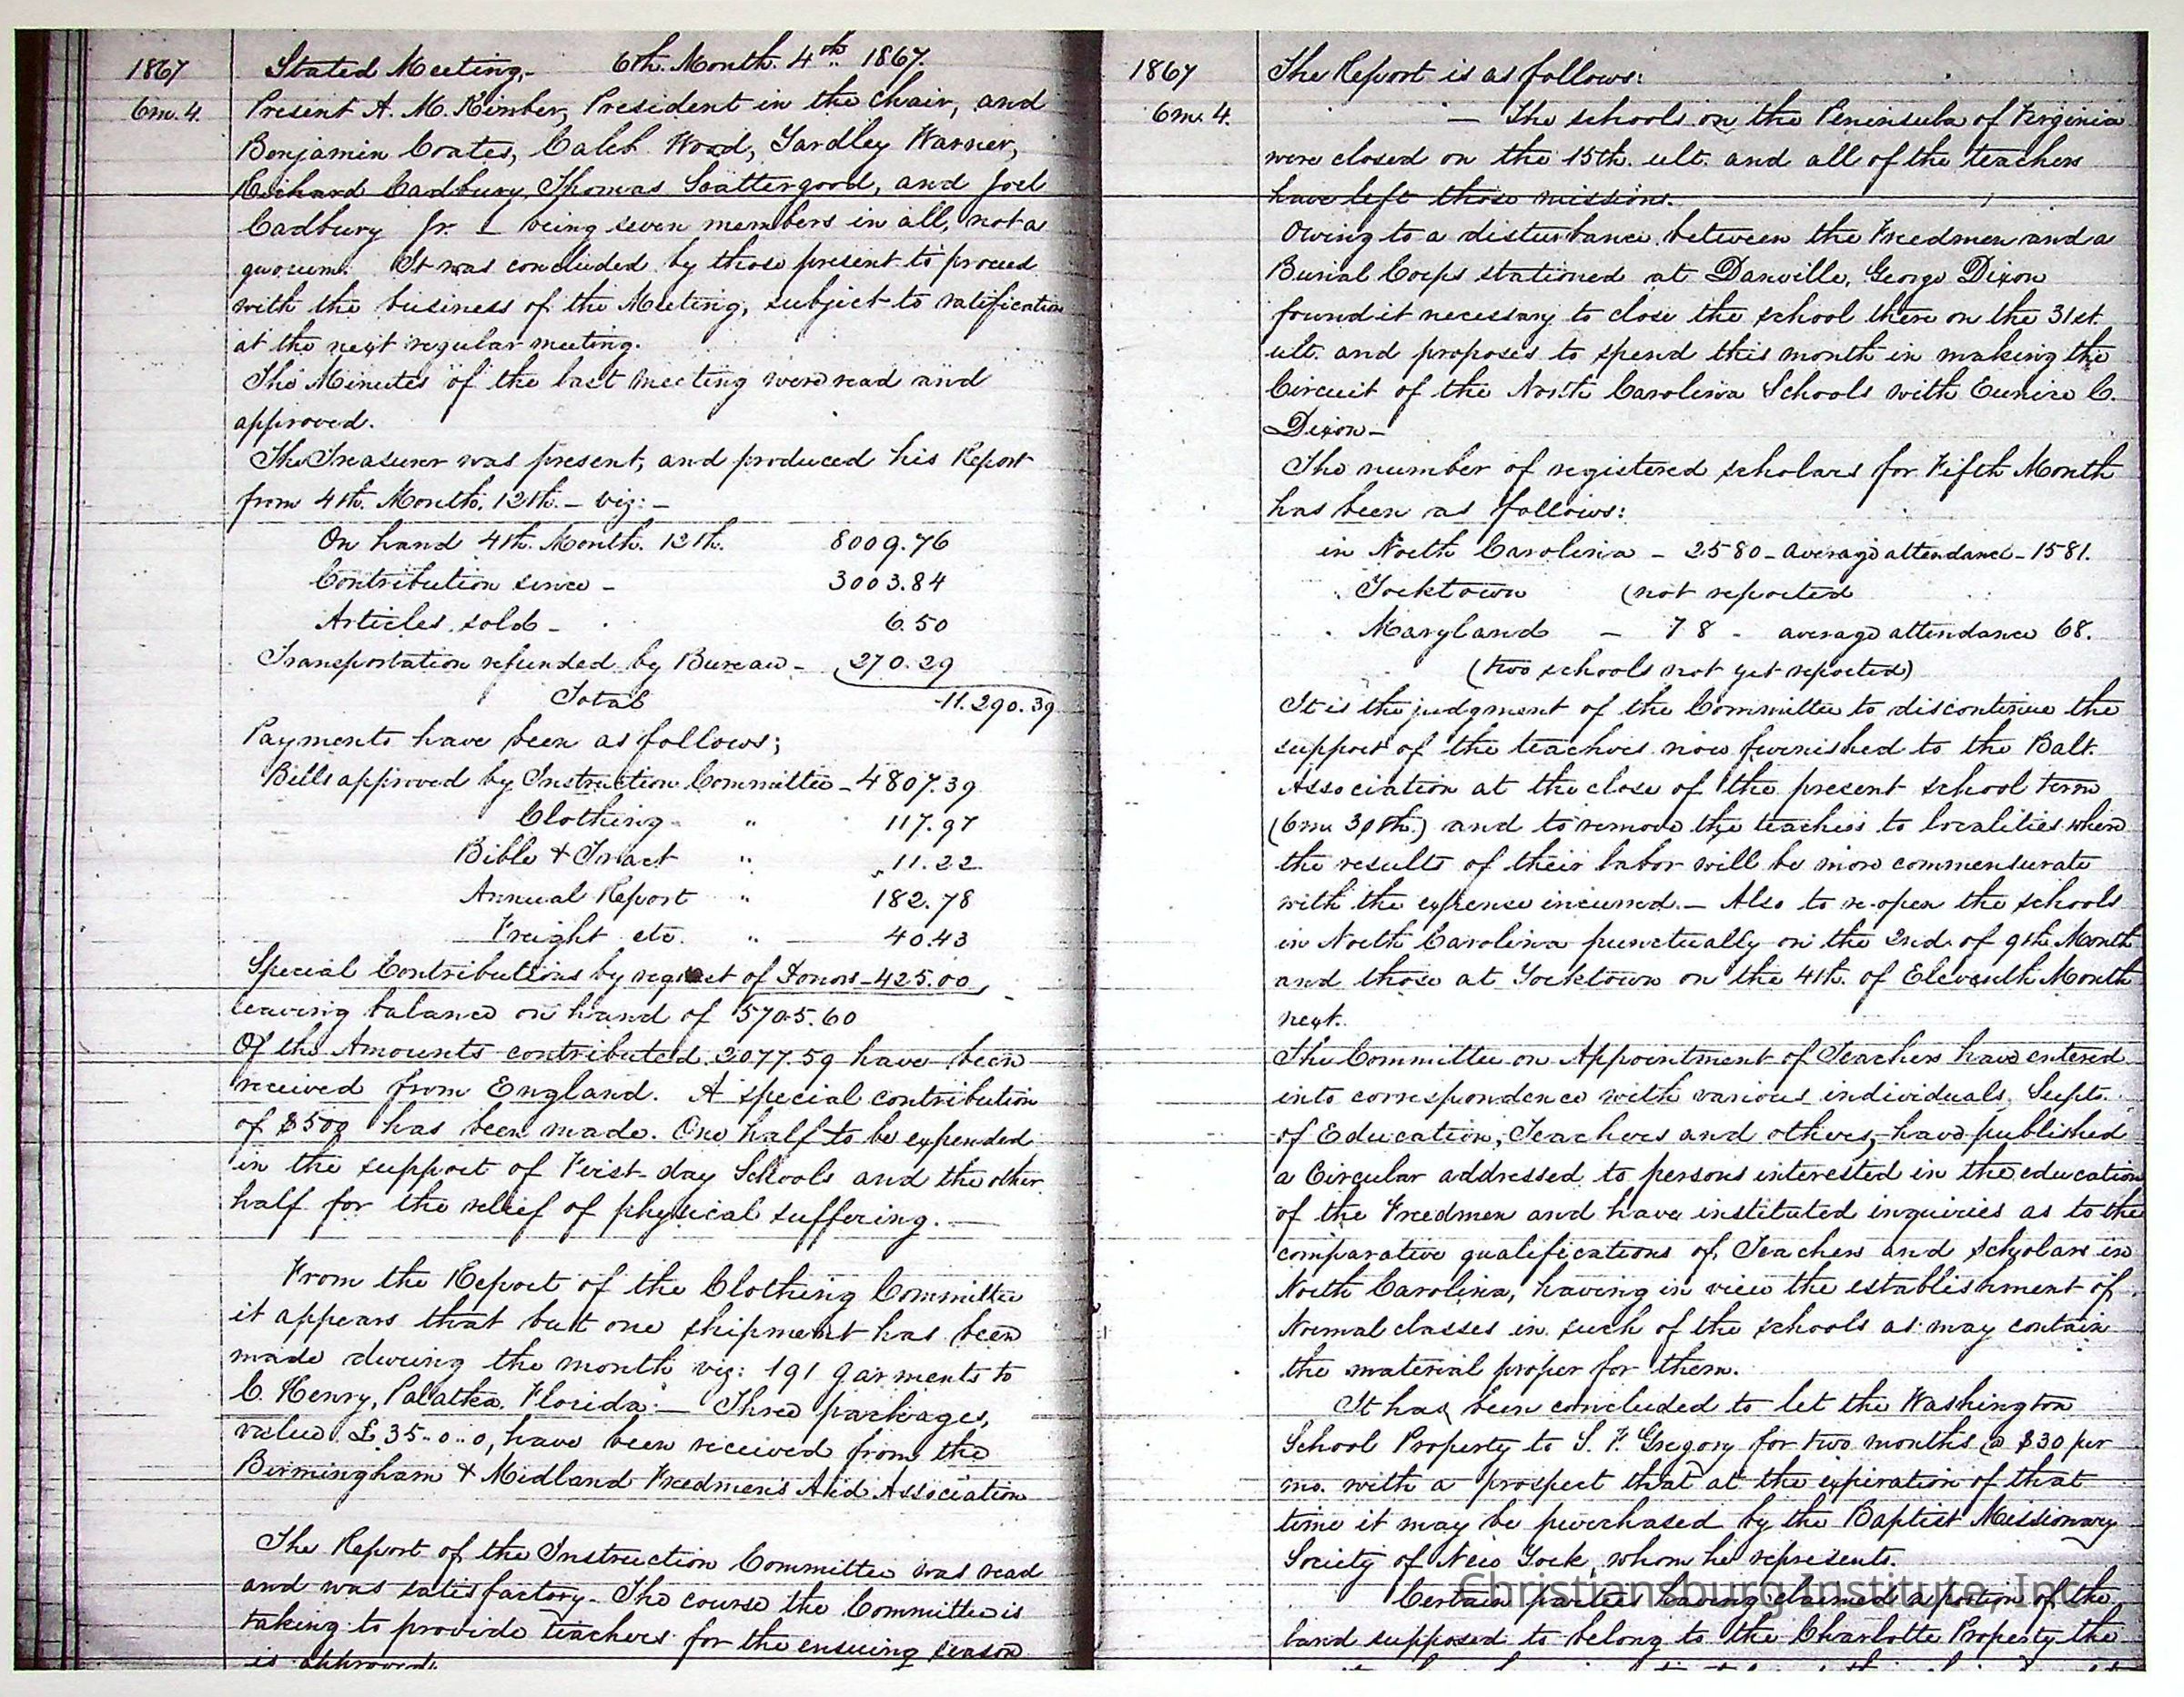 1867
6m. 4.
Stated Meeting,- 6th. Month. 4th. 1867.
Present A. M. Kimber, President in the chair, and
Benjamin Coates, Caleb Wood, Yardley Warner,
Richard Cadbury, Thomas Scattergood, and Joel
Cadbury Jr. - being seven members in all, not a
quorum. It was concluded by those present to proceed
with the business of the Meeting, subject to ratification
at the next regular meeting.
The Minutes of the last meeting were read and
approved.
The Treasurer was present, and produced his Report
from 4th. Month. 12th. - viz: -
On hand 4th. Month. 12th. 8009.76
Contribution since - 3003.84
Articles sold - 6.50
Transportation refunded by Bureau - 270.29
Total 11.290.39
Payments have been as follows;
Bills approved by Instruction Committee - 4807.39
Clothing " 117.97
Bible & Tract " 11.22
Annual Report " 182.78
Freight etc. " 40.43
Special Contributions by request of Donors - 425.00
leaving balance on hand of 5705.60
Of the Amounts contributed 2077.59 have been
received from England. A special contribution
of $500 has been made. One half to be expended
in the support of First-day Schools and the other
half for the relief of physical suffering. -
From the Report of the Clothing Committee
it appears that but one shipment has been
made during the month viz: 191 garments to
C. Henry, Palatka, Florida. - Three packages,
value £35..0..0, have been received from the
Birmingham & Midland Freedmen's Aid Association
The Report of the Instruction Committee was read
and was satisfactory - The course the Committee is
taking to provide teachers for the ensuing season
is approved.
1867
6m. 4.
The Report is as follows:
- The schools on the Peninsula of Virginia
were closed on the 15th. ult. and all of the teachers
have left those missions.
Owing to a disturbance between the Freedmen and a
Burial Corps stationed at Danville, George Dixon
found it necessary to close the school there on the 31st.
ult. and proposes to spend this month in making the
Circuit of the North Carolina Schools with Eunice C.
Dixon -
The number of registered scholars for Fifth Month
has been as follows:
in North Carolina - 2580 - average attendance - 1581.
Yorktown (not reported
Maryland - 78 - average attendance 68.
(two schools not yet reported)
It is the judgment of the Committee to discontinue the
support of the teachers now furnished to the Balt.
Association at the close of the present school term
(6mo 30th.) and to remove the teachers to localities where
the results of their labor will be more commensurate
with the expense incurred. - Also to re-open the schools
in North Carolina punctually on the 2nd. of 9th. Month
and those at Yorktown on the 4th. of Eleventh Month
next.
The Committee on Appointment of Teachers have entered
into correspondence with various individuals, Supts.
of Education, Teachers and others, - have published
a Circular addressed to persons interested in the education
of the Freedmen and have instituted inquiries as to the
comparative qualifications of Teachers and scholars in
North Carolina, having in view the establishment of
Normal classes in such of the schools as may contain
the material proper for them.
It has been concluded to let the Washington
School Property to S. F. Gregory for two months @ $30 per
mo. with a prospect that at the expiration of that
time it may be purchased by the Baptist Missionary
Society of New York, whom he represents.
Certain parties having claimed a portion of the
land supposed to belong to the Charlotte Property the
Christiansburg Institute, Inc.